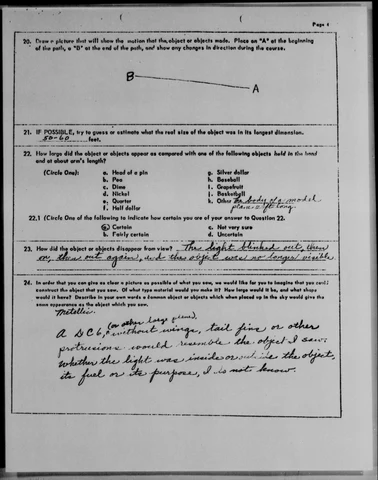 Page 4
20. Draw a picture that will show the motion that the object or objects made. Place an "A" at the beginning
of the path, a "B" at the end of the path, and show any changes in direction during the course.
B
A
21. IF POSSIBLE, try to guess or estimate what the real size of the object was in its longest dimension.
50-60 feet.
22. How large did the object or objects appear as compared with one of the following objects held in the hand
and at about arm's length?
(Circle One): a. Head of a pin g. Silver dollar
b. Pea h. Baseball
c. Dime i. Grapefruit
d. Nickel j. Basketball
e. Quarter k. Other The body of a model
f. Half dollar plane long.
22.1 (Circle One of the following to indicate how certain you are of your answer to Question 22.
a. Certain c. Not very sure
b. Fairly certain d. Uncertain
23. How did the object or objects disappear from view? The light blinked out, then
on, then out again, and the object was no longer visible.
24. In order that you can give as clear a picture as possible of what you saw, we would like for you to imagine that you could
construct the object that you saw. Of what type material would you make it? How large would it be, and what shape
would it have? Describe in your own words a common object or objects which when placed up in the sky would give the
same appearance as the object which you saw.
Metallic.
(or other large plane)
A DC6, without wings, tail fins or other
protrusions would resemble the object I saw.
Whether the light was inside or outside the object,
its fuel or its purpose, I do not know.